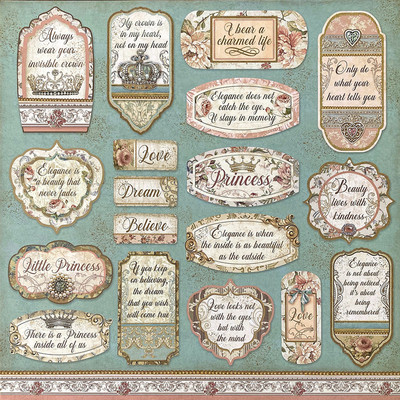 Always
wear your
invisible crown
My crown is
in my heart,
not on my head
I bear a
charmed life
Only do
what your
heart tells you
Elegance does not
catch the eye,
It stays in memory
Elegance is
a beauty that
never fades
Love
Dream
Believe
Princess
Beauty
lives with
kindness
Elegance is when
the inside is as beautiful
as the outside
Little Princess
If you keep
on believing,
the dream
that you wish
will come true
Love looks not
with the eyes
but with
the mind
Love
Elegance
is not about
being noticed,
it's about
being
remembered
There is a Princess
inside all of us